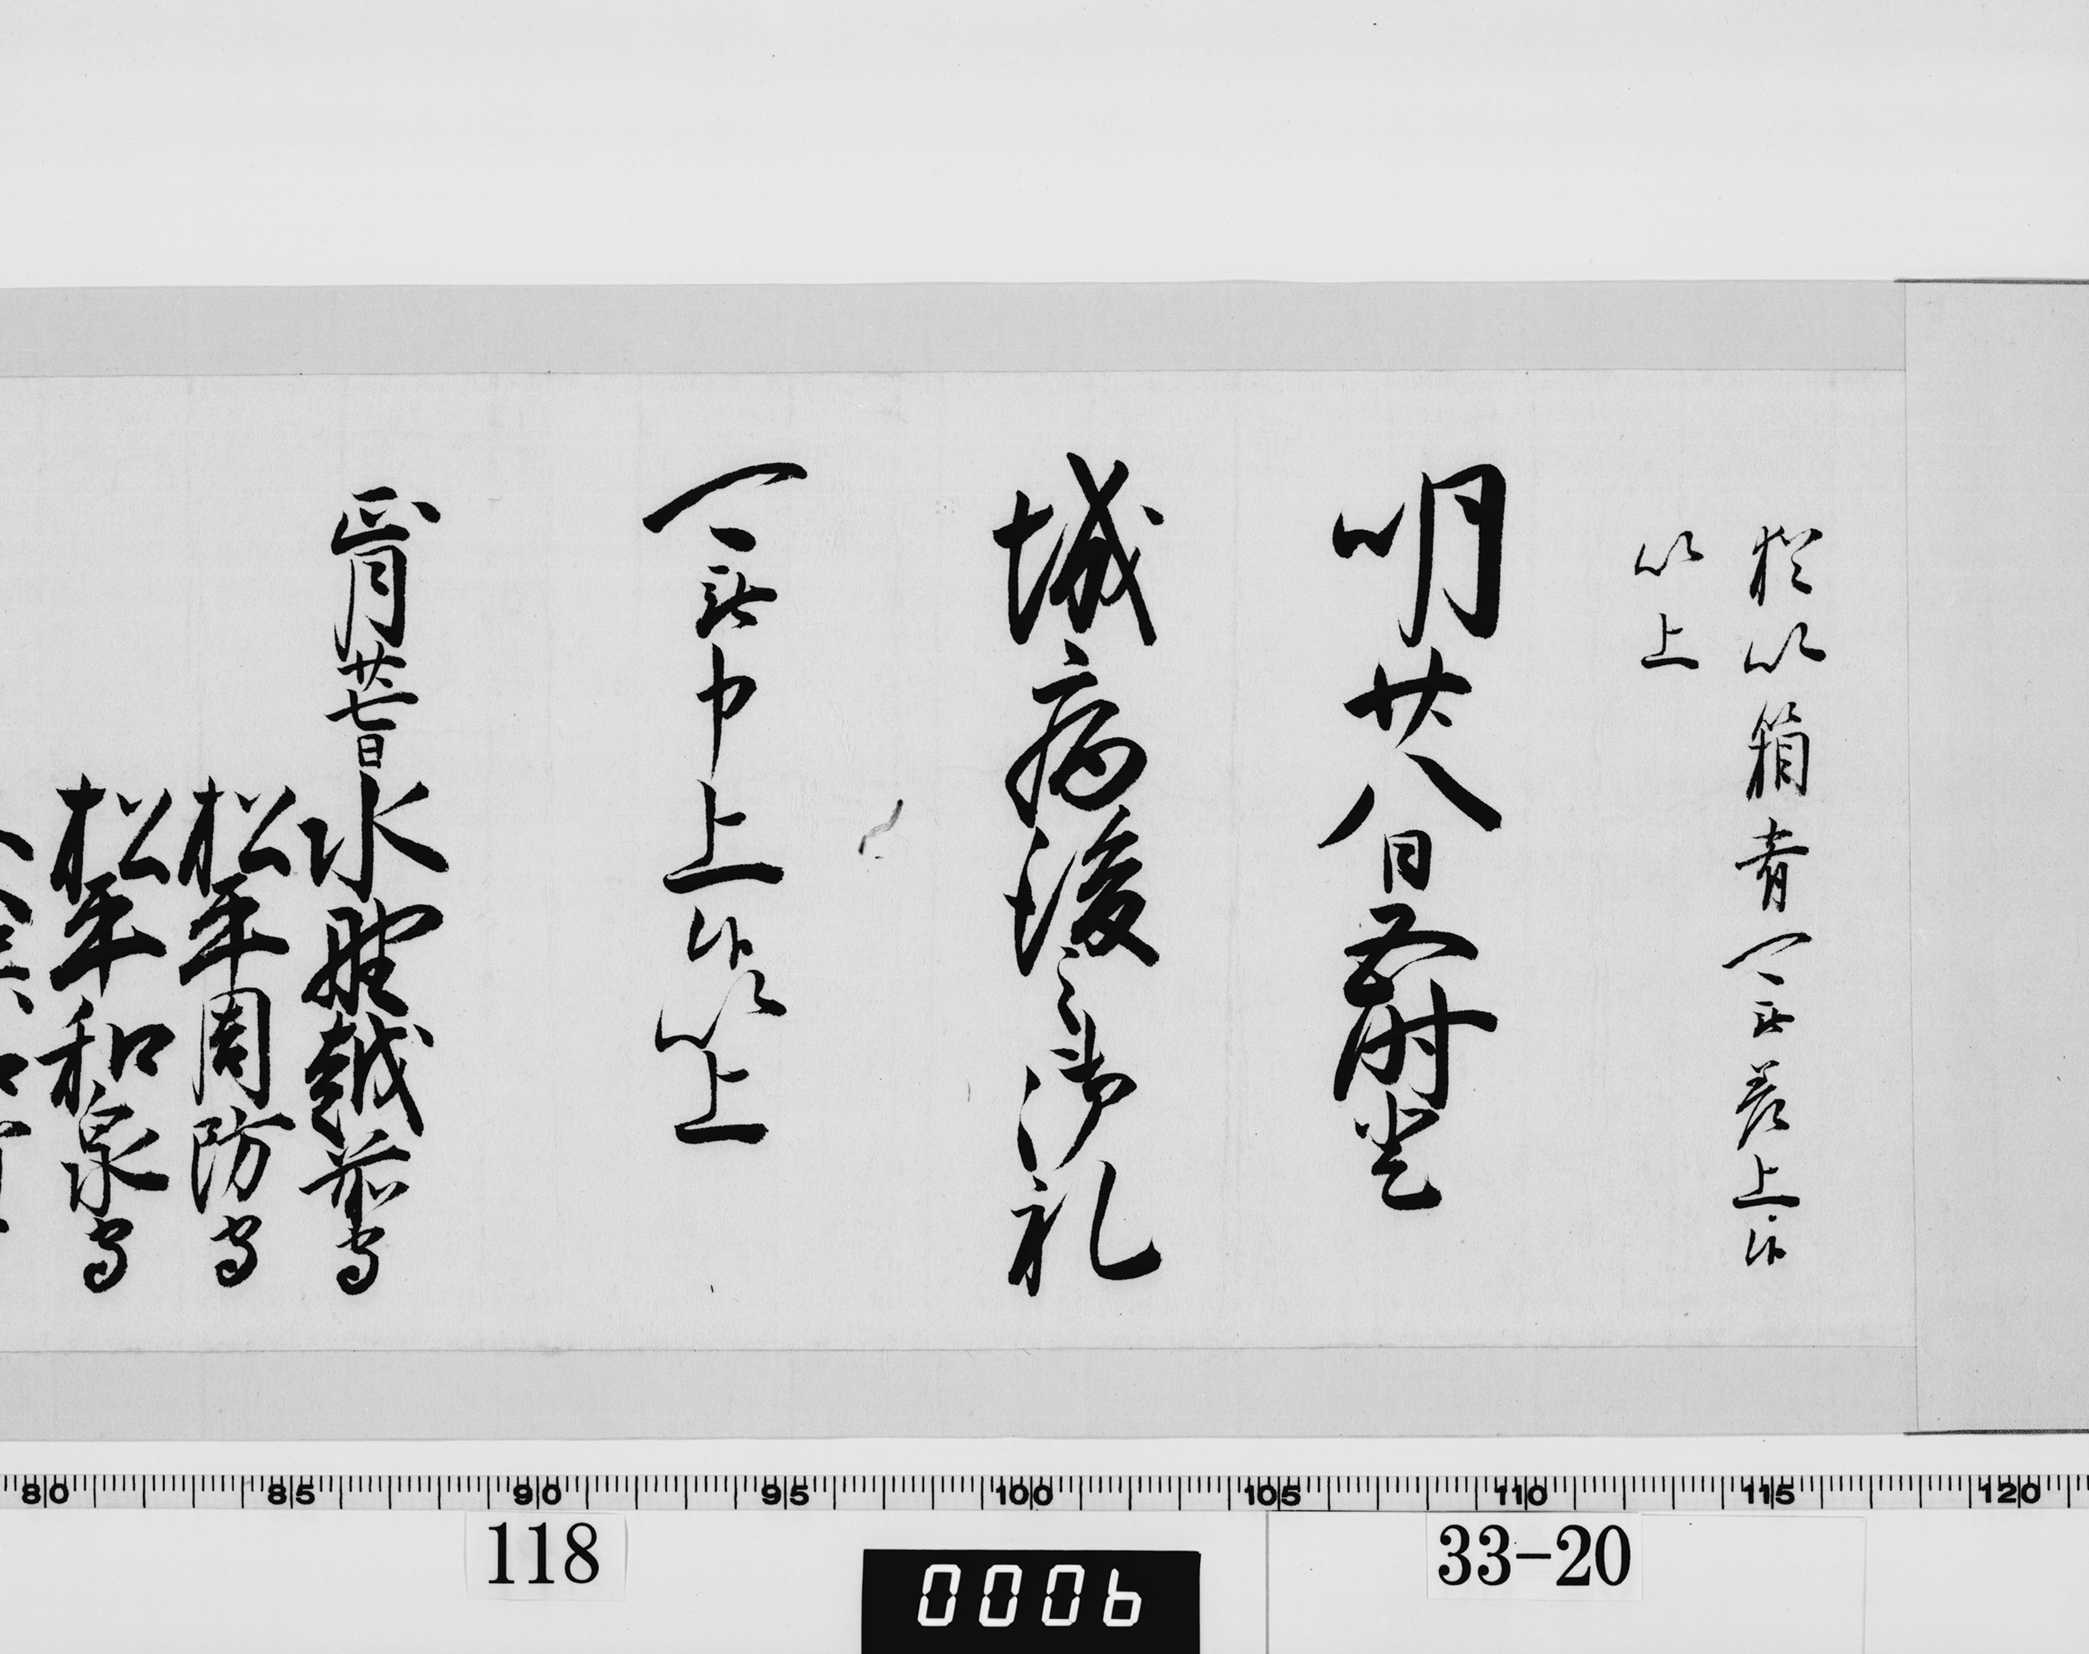 猶以箱肴可被差上候
以上
明廿八日五時登
城病後之御礼
可被申上候以上
正月廿七日 水野越前守
松平周防守
松平和泉守
80 85 90 95 100 105 110 115 120
118
0006
33-20